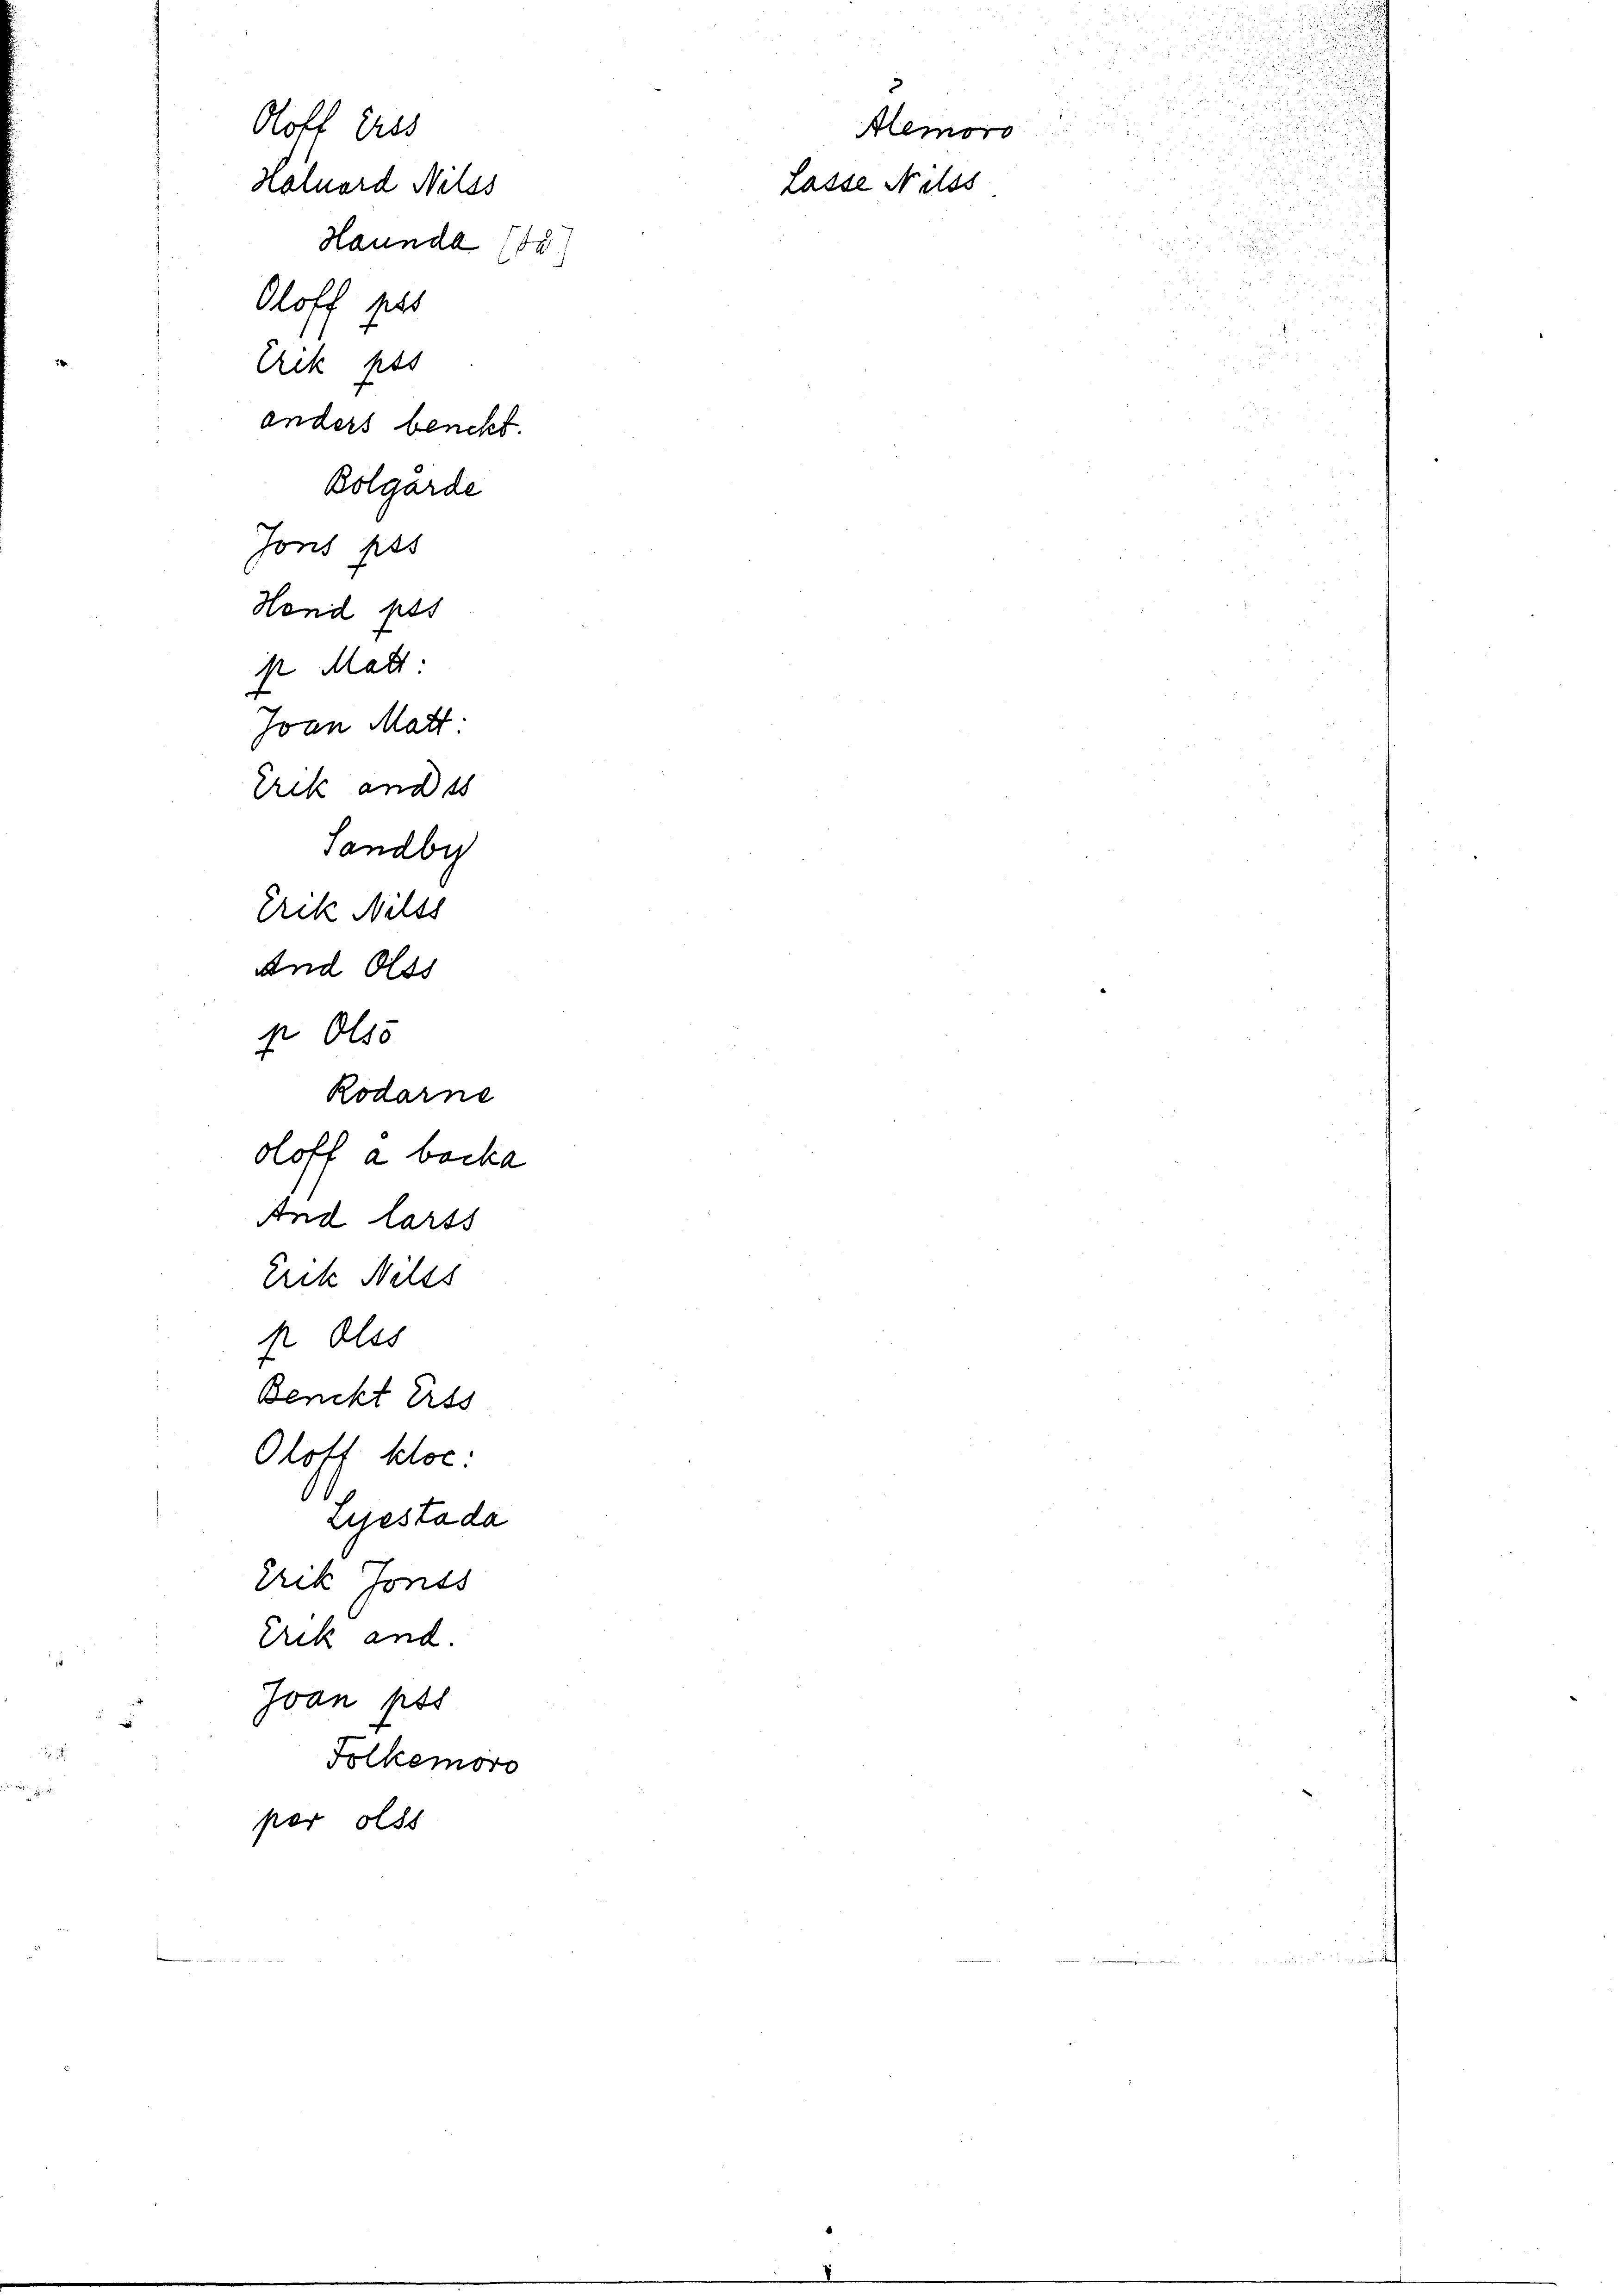 Oloff Erss
Haluard Nilss
Haunda
Oloff pss
Erik pss
anders benckt.
Bolgårde
Jons pss
Hand pss
p Matt:
Joan Matt:
Erik andss
Sandby
Erik Nilss
And Olss
p Olss
Rodarne
oloff å backa
And larss
Erik Nilss
p Olss
Benckt Erss
Oloff kloc:
Lyestada
Erik Jonss
Erik and.
Joan pss
Folkemoro
per olss
Alemoro
Lasse Nilss